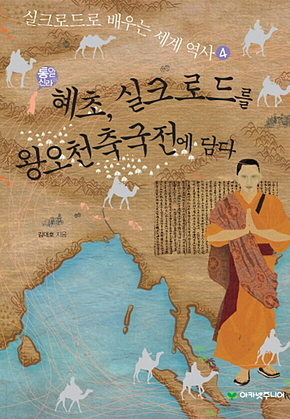 실크로드로 배우는 세계 역사 4
통일
신라
혜초, 실크로드를
왕오천축국전에 담다
김대호 지음
아카넷주니어